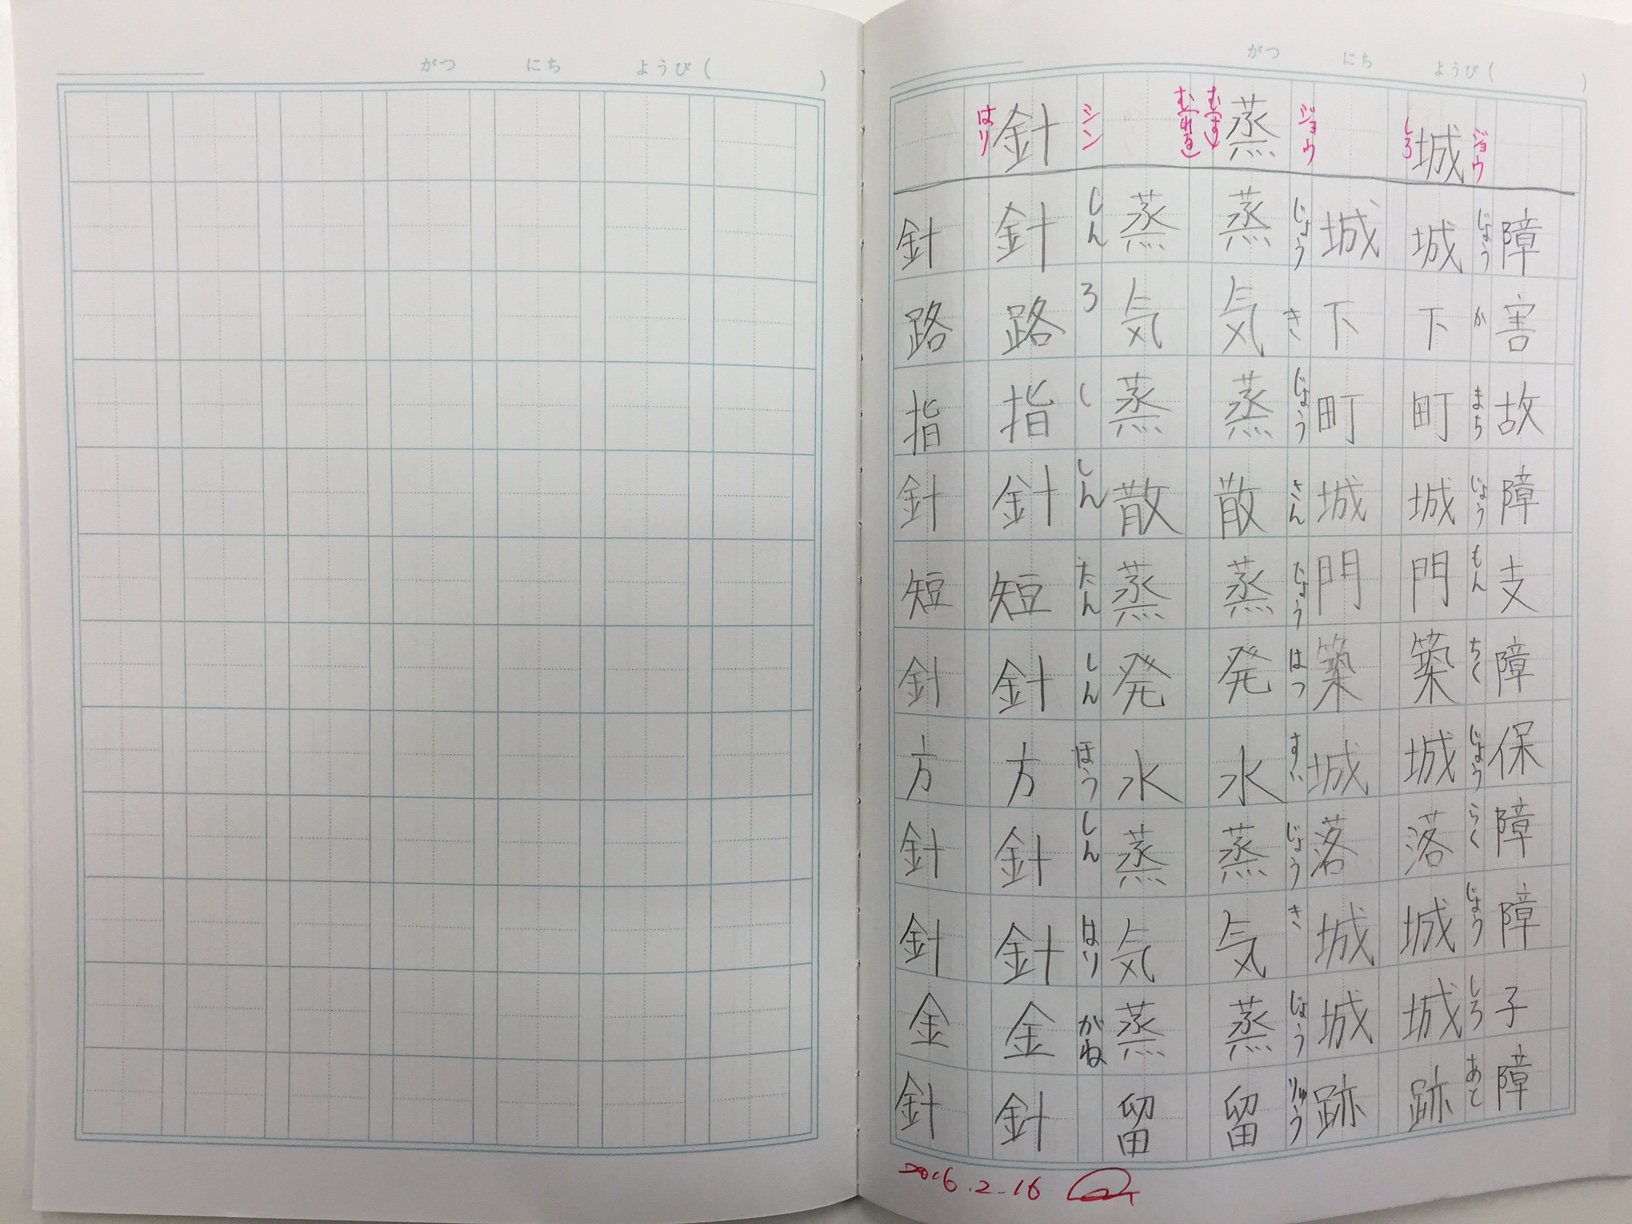 がつ にち ようび ( )
がつ にち ようび ( )
障害故障支障保障障子障
ジョウ じょうかまちじょうもんちくじょうらくじょうしろあと
城 城下町城門築城落城城跡
しろ
城下町城門築城落城城跡
ジョウ じょうきじょうさんじょうはつすいじょうきじょうりゅう
蒸 蒸気蒸散蒸発水蒸気蒸留
むす
むれる
蒸気蒸散蒸発水蒸気蒸留
シン しんろししんたんしんほうしんはりがね
針 針路指針短針方針針金針
はり
針路指針短針方針針金針
2016.2.16